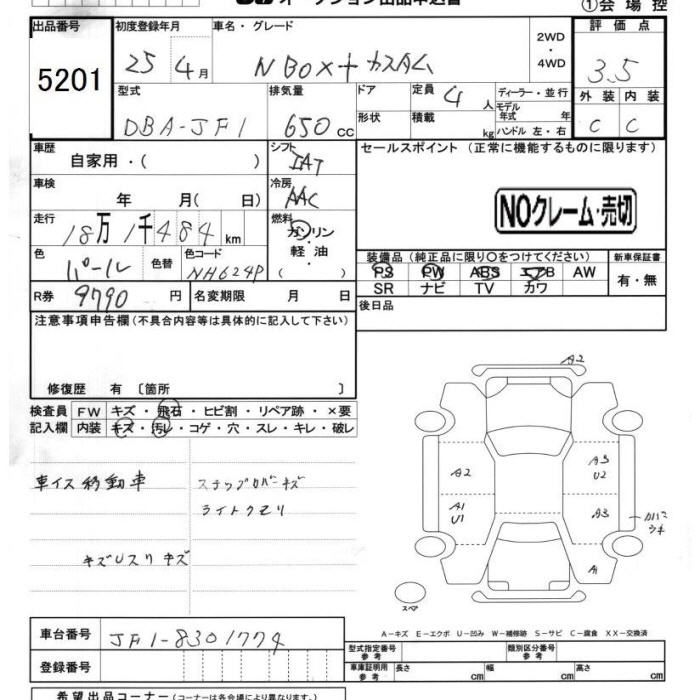 オークション出品申込書
①会場控
出品番号
5201
初度登録年月
25 4月
車名・グレード
N BOX+ カスタム
2WD
・
4WD
評価点
3.5
型式
DBA-JF1
排気量
650cc
ドア
形状
定員 4人
積載 kg
ディーラー・並行
モデル年式 年
ハンドル 左・右
外装 内装
C C
車歴
自家用・( )
シフト
IAT
セールスポイント (正常に機能するものに限ります)
車検
年 月( 日)
冷房
AAC
NOクレーム・売切
走行
18万1千484km
燃料
ガソリン
軽油
( )
色
パール
色替
色コード
NH624P
装備品(純正品に限り○をつけてください)
PS PW ABS エアB AW
SR ナビ TV カワ
新車保証書
有・無
R券
9790円
名変期限 月 日
後日品
注意事項申告欄(不具合内容等は具体的に記入して下さい)
修復歴 有〔箇所 〕
検査員
記入欄
FW キズ・飛石・ヒビ割・リペア跡・×要
内装 キズ・汚レ・コゲ・穴・スレ・キレ・破レ
車イス移動車
ステップカバーキズ
ライトクモリ
キズUスリキズ
A2
A2
A3
U2
A1
U1
A3
カバー
ウキ
A1
スペア
A-キズ E-エクボ U-凹み W-補修跡 S-サビ C-腐食 XX-交換済
車台番号
JF1-8301774
登録番号
型式指定番号
参考
類別区分番号
参考
車庫証明用
参考
長さ cm
幅 cm
高さ cm
希望出品コーナー(コーナーは各会場により異なります)